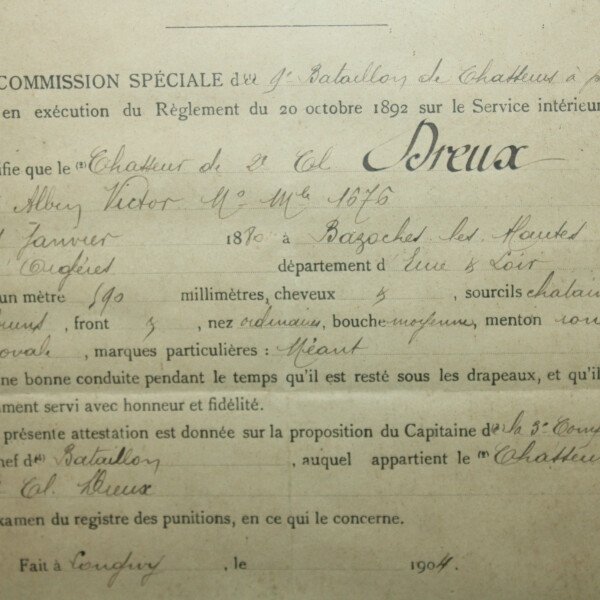 COMMISSION SPÉCIALE du 9e Bataillon de Chasseurs à p
en exécution du Règlement du 20 octobre 1892 sur le Service intérieur
ifie que le (2) Chasseur de 2e Cl Dreux
Albin Victor No Mle 1676
Janvier 1880 à Bazoches les Hautes
Orgères département d'Eure & Loir
un mètre 590 millimètres, cheveux &, sourcils chatain
bruns, front &, nez ordinaire, bouche moyenne, menton ron
ovale, marques particulières : Néant
ne bonne conduite pendant le temps qu'il est resté sous les drapeaux, et qu'il
ment servi avec honneur et fidélité.
présente attestation est donnée sur la proposition du Capitaine de la 3e Comp
hef de Bataillon, auquel appartient le (2) Chasseur
Cl. Dreux
xamen du registre des punitions, en ce qui le concerne.
Fait à Longwy, le 1904.